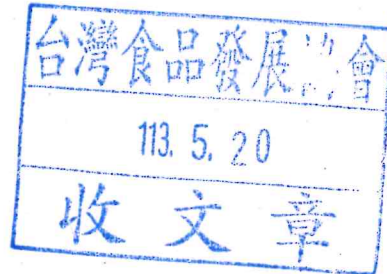 台灣食品發展 會
113. 5. 20
收文章